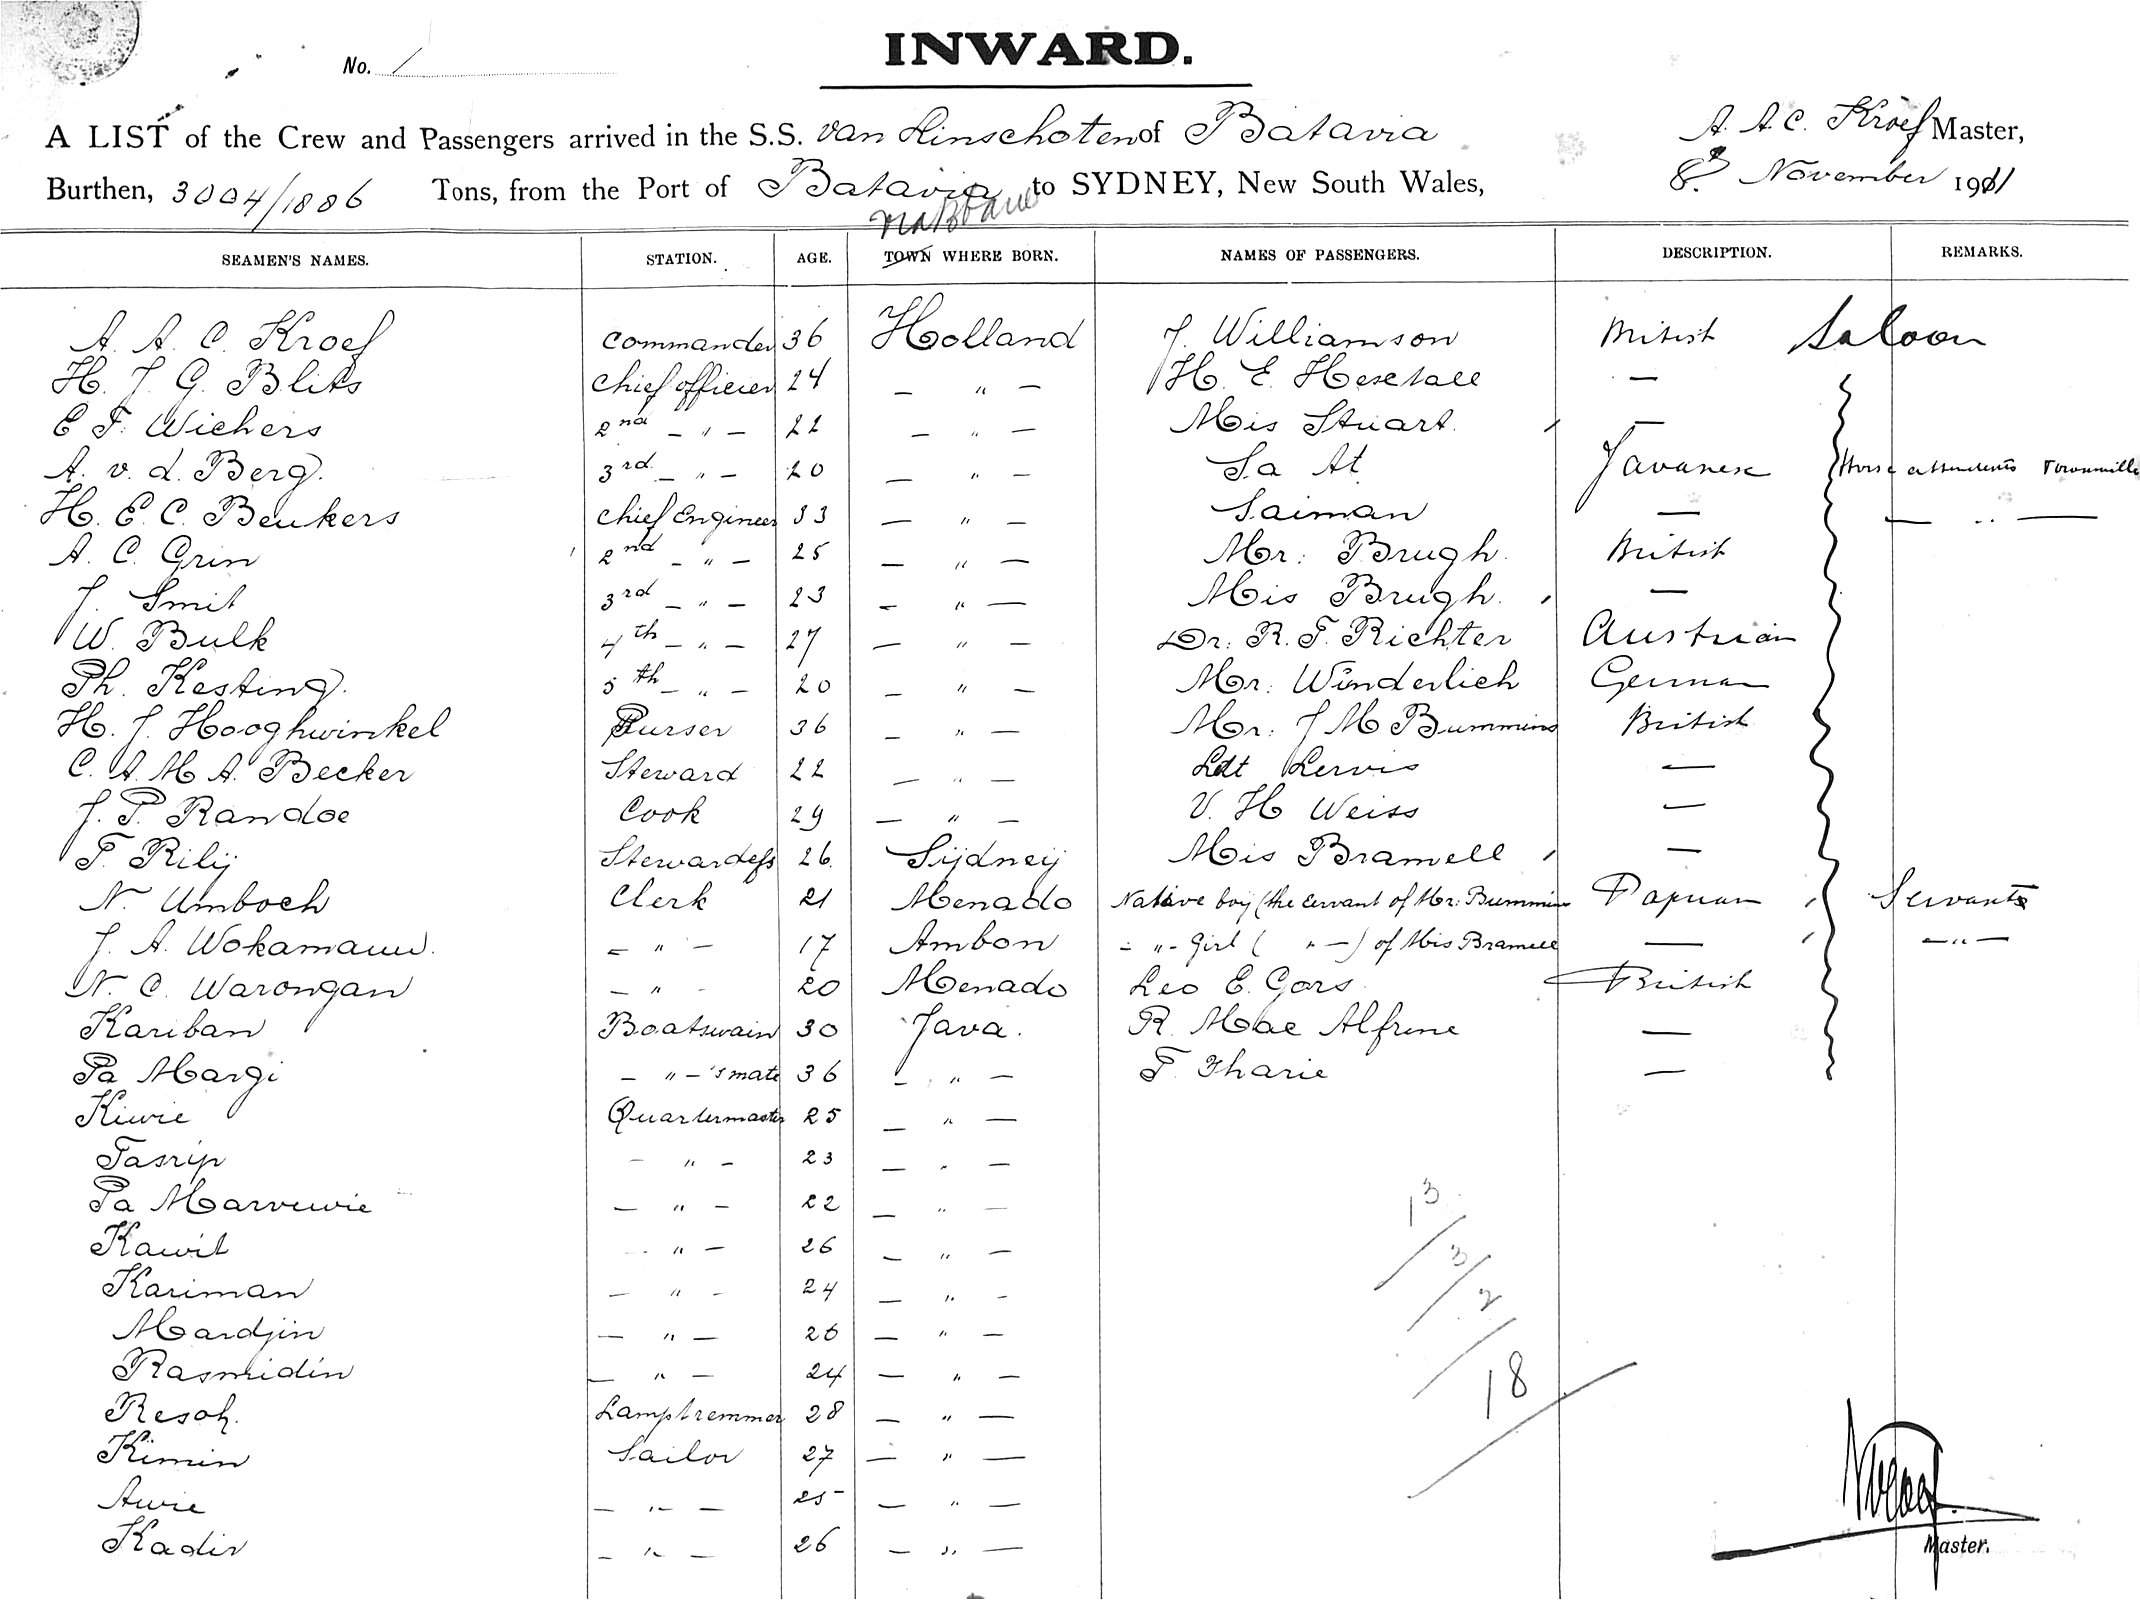 INWARD.
No. 1
A LIST of the Crew and Passengers arrived in the S.S. van Linschoten of Batavia A. A. C. Kroef Master,
Burthen, 3004/1886 Tons, from the Port of Batavia to SYDNEY, New South Wales, 8 November 1911
SEAMEN'S NAMES. STATION. AGE. TOWN WHERE BORN. NAMES OF PASSENGERS. DESCRIPTION. REMARKS.
A. A. C. Kroef Commander 36 Holland J. Williamson British Saloon
H. J. G. Bliks Chief officier 24 — " — H. E. Hextall —
E F. Wichers 2nd — " — 22 — " — Mis Stuart. —
A. v. d. Berg. 3rd. — " — 20 — " — Sa At Javanese Horse attendents Townsville
H. E. C. Beukers Chief Engineer 33 — " — Saiman — — " —
A. C. Grin 2nd — " — 25 — " — Mr: Brugh. British
J. Smit 3rd — " — 23 — " — Mis Brugh. —
W. Bulk 4th — " — 27 — " — Dr: R. F. Richter Austrian
Ph. Kesting. 5th — " — 20 — " — Mr: Winderlich German
H. J. Hooghwinkel Purser 36 — " — Mr: J M Bummins British
C. A. M A. Becker Steward 22 — " — Ldt Lervis —
J. P. Randoe Cook 29 — " — V. H Weiss —
F. Rilij Stewardess 26. Sijdneij Mis Bramell —
N. Umboch Clerk 21 Menado Native boy (the servant of Mr: Bummins Papuan Servants
J. A. — " — 17 Ambon — " — Girl ( " — ) of Mis Bramell — — " —
N. C. Warongan — " — 20 Menado Leo E. Gors. British
Kariban Boatswain 30 Java. R. Mac Alfrene —
Pa Margi — " — 's mate 36 — " — F. Tharie —
Kiwie Quartermaster 25 — " —
Tasrip — " — 23 — " —
Pa — " — 22 — " —
Kawit — " — 26 — " —
Kariman — " — 24 — " —
Mardjin — " — 26 — " —
Rasmidin — " — 24 — " —
Resoh. Lamptremmer 28 — " —
Kimin Sailor 27 — " —
Awie — " — 25 — " —
Kadir — " — 26 — " —
13
3
2
18
Master.